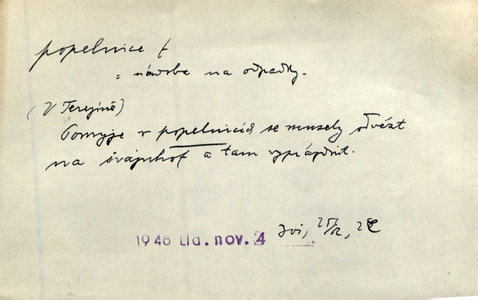 popelnice f
= nádoba na odpadky.
(V Terezíně)
Pomyje v popelnicích se musely odvézt
na švájnhof a tam vyprázdnit.
1948 Lid. nov. 4